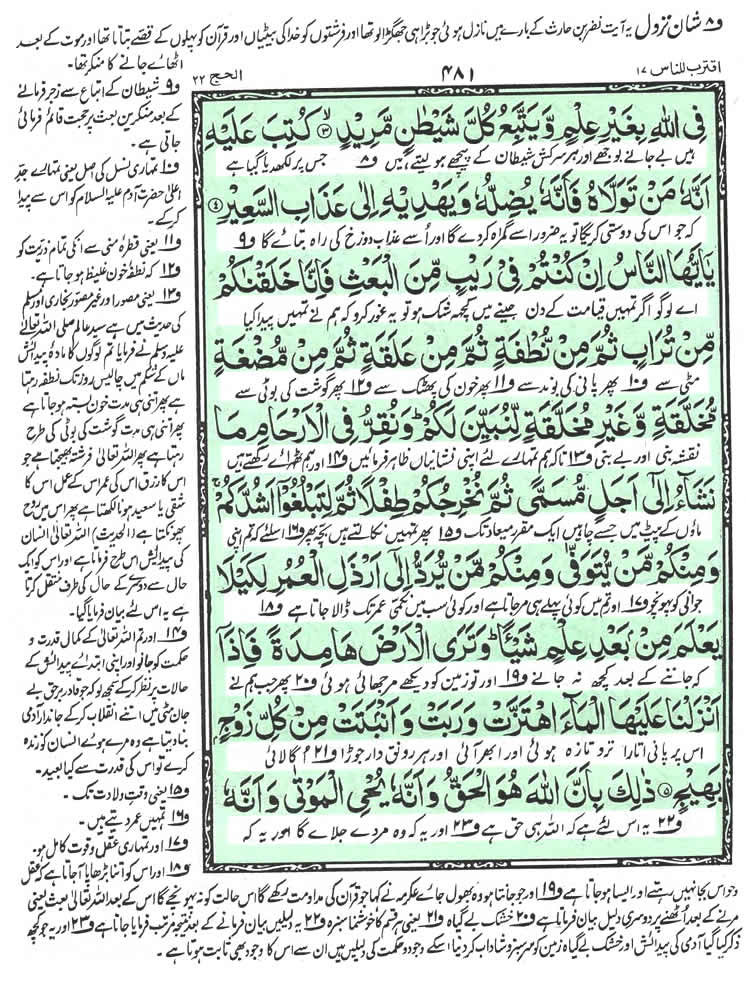 ف۸ شان نزول یہ آیت نضر بن حارث کے بارے میں نازل ہوئی جو بڑا ہی جھگڑالو تھا اور فرشتوں کو خدا کی بیٹیاں اور قرآن کو پہلوں کے قصے بتاتا تھا اور موت کے بعد
اٹھائے جانے کا منکر تھا۔
اقترب للناس ۱۷
۴۸۱
الحج ۲۲
فِی اللّٰهِ بِغَیْرِ عِلْمٍ وَّیَتَّبِعُ كُلَّ شَیْطٰنٍ مَّرِیْدٍ ۳ كُتِبَ عَلَیْهِ
ہیں بے جانے بوجھے اور ہر سرکش شیطان کے پیچھے ہو لیتے ہیں ف۸ جس پر لکھ دیا گیا ہے
اَنَّهٗ مَنْ تَوَلَّاهُ فَاَنَّهٗ یُضِلُّهٗ وَیَهْدِیْهِ اِلٰی عَذَابِ السَّعِیْرِ ۴
کہ جو اس کی دوستی کرے گا تو یہ ضرور اسے گمراہ کر دے گا اور اسے عذاب دوزخ کی راہ بتائے گا ف۹
یٰۤاَیُّهَا النَّاسُ اِنْ كُنْتُمْ فِیْ رَیْبٍ مِّنَ الْبَعْثِ فَاِنَّا خَلَقْنٰكُمْ
اے لوگو اگر تمہیں قیامت کے دن جینے میں کچھ شک ہو تو یہ غور کرو کہ ہم نے تمہیں پیدا کیا
مِّنْ تُرَابٍ ثُمَّ مِنْ نُّطْفَةٍ ثُمَّ مِنْ عَلَقَةٍ ثُمَّ مِنْ مُّضْغَةٍ
مٹی سے ف۱۰ پھر پانی کی بوند سے ف۱۱ پھر خون کی پھٹک سے ف۱۲ پھر گوشت کی بوٹی سے
مُّخَلَّقَةٍ وَّغَیْرِ مُخَلَّقَةٍ لِّنُبَیِّنَ لَكُمْ وَنُقِرُّ فِی الْاَرْحَامِ مَا
نقشہ بنی اور بے بنی ف۱۳ تاکہ ہم تمہارے لئے اپنی نشانیاں ظاہر فرمائیں ف۱۴ اور ہم ٹھہرائے رکھتے ہیں
نَشَآءُ اِلٰۤی اَجَلٍ مُّسَمًّی ثُمَّ نُخْرِجُكُمْ طِفْلًا ثُمَّ لِتَبْلُغُوْۤا اَشُدَّكُمْ
ماؤں کے پیٹ میں جسے چاہیں ایک مقرر میعاد تک ف۱۵ پھر تمہیں نکالتے ہیں بچہ پھر ف۱۶ اس لئے کہ تم اپنی
وَمِنْكُمْ مَّنْ یُّتَوَفّٰی وَمِنْكُمْ مَّنْ یُّرَدُّ اِلٰۤی اَرْذَلِ الْعُمُرِ لِكَیْلَا
جوانی کو پہونچو ف۱۷ اور تم میں کوئی پہلے ہی مر جاتا ہے اور کوئی سب میں نکمی عمر تک ڈالا جاتا ہے ف۱۸
یَعْلَمَ مِنْۢ بَعْدِ عِلْمٍ شَیْـًٔا وَتَرَی الْاَرْضَ هَامِدَةً فَاِذَاۤ
کہ جاننے کے بعد کچھ نہ جانے ف۱۹ اور تو زمین کو دیکھے مرجھائی ہوئی ف۲۰ پھر جب ہم نے
اَنْزَلْنَا عَلَیْهَا الْمَآءَ اهْتَزَّتْ وَرَبَتْ وَاَنْۢبَتَتْ مِنْ كُلِّ زَوْجٍۭ
اس پر پانی اتارا تر و تازہ ہوئی اور ابھر آئی اور ہر رونق دار جوڑا ف۲۱ اگا لائی
بَهِیْجٍ ۵ ذٰلِكَ بِاَنَّ اللّٰهَ هُوَ الْحَقُّ وَاَنَّهٗ یُحْیِ الْمَوْتٰی وَاَنَّهٗ
ف۲۲ یہ اس لئے ہے کہ اللہ ہی حق ہے ف۲۳ اور یہ کہ وہ مردے جلائے گا اور یہ کہ
ف۹ شیطان کے اتباع سے زجر فرمانے
کے بعد منکرین بعث پر حجت قائم فرمائی
جاتی ہے۔
ف۱۰ تمہاری نسل کی اصل یعنی تمہارے جد
اعلیٰ حضرت آدم علیہ السلام کو اس سے پیدا
کر کے۔
ف۱۱ یعنی قطرۂ منی سے ان کی تمام ذریت کو
ف۱۲ کہ نطفہ خون غلیظ ہو جاتا ہے۔
ف۱۳ یعنی مصور اور غیر مصور بخاری اور مسلم
کی حدیث میں ہے سید عالم صلی اللہ تعالیٰ
علیہ وسلم نے فرمایا تم لوگوں کا مادۂ پیدائش
ماں کے شکم میں چالیس روز تک نطفہ رہتا
ہے پھر اتنی ہی مدت خون بستہ ہو جاتا ہے
پھر اتنی ہی مدت گوشت کی بوٹی کی طرح
رہتا ہے پھر اللہ تعالیٰ فرشتہ بھیجتا ہے جو
اس کا رزق اس کی عمر اس کے عمل اس کا
شقی یا سعید ہونا لکھتا ہے پھر اس میں روح
پھونکتا ہے (الحدیث) اللہ تعالیٰ انسان
کی پیدائش اس طرح فرماتا ہے اور اس کو ایک
حال سے دوسرے حال کی طرف منتقل کرتا
ہے یہ اس لئے بیان فرمایا گیا۔
ف۱۴ اور تم اللہ تعالیٰ کے کمال قدرت و
حکمت کو جانو اور اپنی ابتدائے پیدائش کے
حالات پر نظر کر کے سمجھ لو کہ جو قادر برحق بے
جان مٹی میں اتنے انقلاب کر کے جاندار آدمی
بنا دیتا ہے وہ مرے ہوئے انسان کو زندہ
کرے تو اس کی قدرت سے کیا بعید۔
ف۱۵ یعنی وقت ولادت تک۔
ف۱۶ تمہیں عمر دیتے ہیں۔
ف۱۷ اور تمہاری عقل و قوت کامل ہو۔
ف۱۸ اور اس کو اتنا بڑھاپا آجاتا ہے کہ عقل
و حواس بجا نہیں رہتے اور ایسا ہو جاتا ہے ف۱۹ اور جو جانتا ہو وہ بھول جائے عکرمہ نے کہا جو قرآن کی مداومت رکھے گا اس حالت کو نہ پہونچے گا اس کے بعد اللہ تعالیٰ بعث یعنی
مرنے کے بعد اٹھنے پر دوسری دلیل بیان فرماتا ہے ف۲۰ خشک بے گیاہ ف۲۱ یعنی ہر قسم کا خوشنما سبزہ ف۲۲ یہ دلیلیں بیان فرمانے کے بعد نتیجہ مرتب فرمایا جاتا ہے ف۲۳ اور یہ جو کچھ
ذکر کیا گیا آدمی کی پیدائش اور خشک بے گیاہ زمین کو سرسبز و شاداب کر دینا اس کے وجود و حکمت کی دلیلیں ہیں ان سے اس کا وجود بھی ثابت ہوتا ہے۔